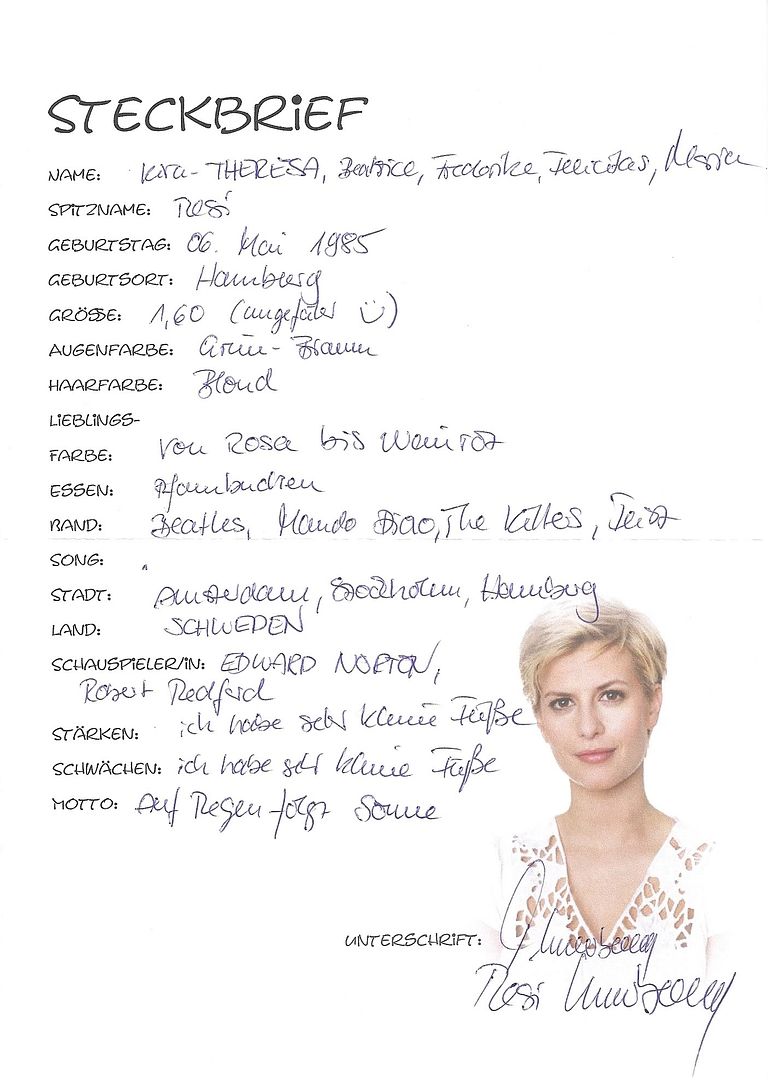 STECKBRIEF
NAME: Kira-THERESA, Beatrice, Frederike, Felicitas,
SPITZNAME: Resi
GEBURTSTAG: 06. Mai 1985
GEBURTSORT: Hamburg
GRÖSSE: 1,60 (ungefähr Ü)
AUGENFARBE: Grün-Braun
HAARFARBE: Blond
LIEBLINGS-
FARBE: von Rosa bis Weinrot
ESSEN: Pfannkuchen
BAND: Beatles, Mando Diao, The Killers, Feist
SONG:
STADT: Amsterdam, Stockholm, Hamburg
LAND: SCHWEDEN
SCHAUSPIELER/IN: EDWARD NORTON,
Robert Redford
STÄRKEN: ich habe sehr kleine Füße
SCHWÄCHEN: ich habe sehr kleine Füße
MOTTO: Auf Regen folgt Sonne
UNTERSCHRIFT:
Resi